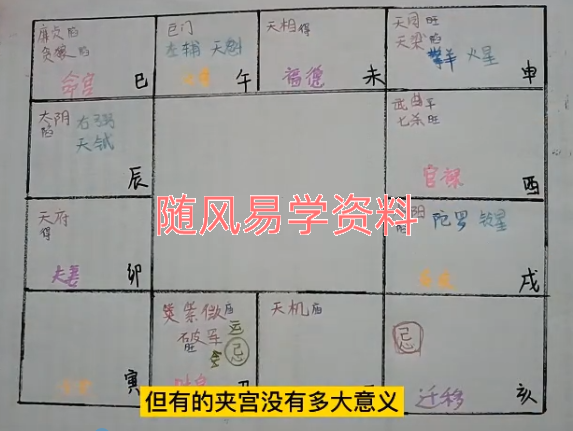 廉贞陷
贪狼陷
命宫
巳
巨门
左辅 天魁
午
天相得
福德
未
天同旺
天梁陷
擎羊 火星
申
太阴
陷
右弼
天钺
辰
武曲平
七杀旺
官禄
酉
随风易学资料
天府
得
夫妻
卯
阳
陀罗 铃星
戌
寅
紫微庙
破军
忌
天机庙
忌
迁移
亥
但有的夹宫没有多大意义